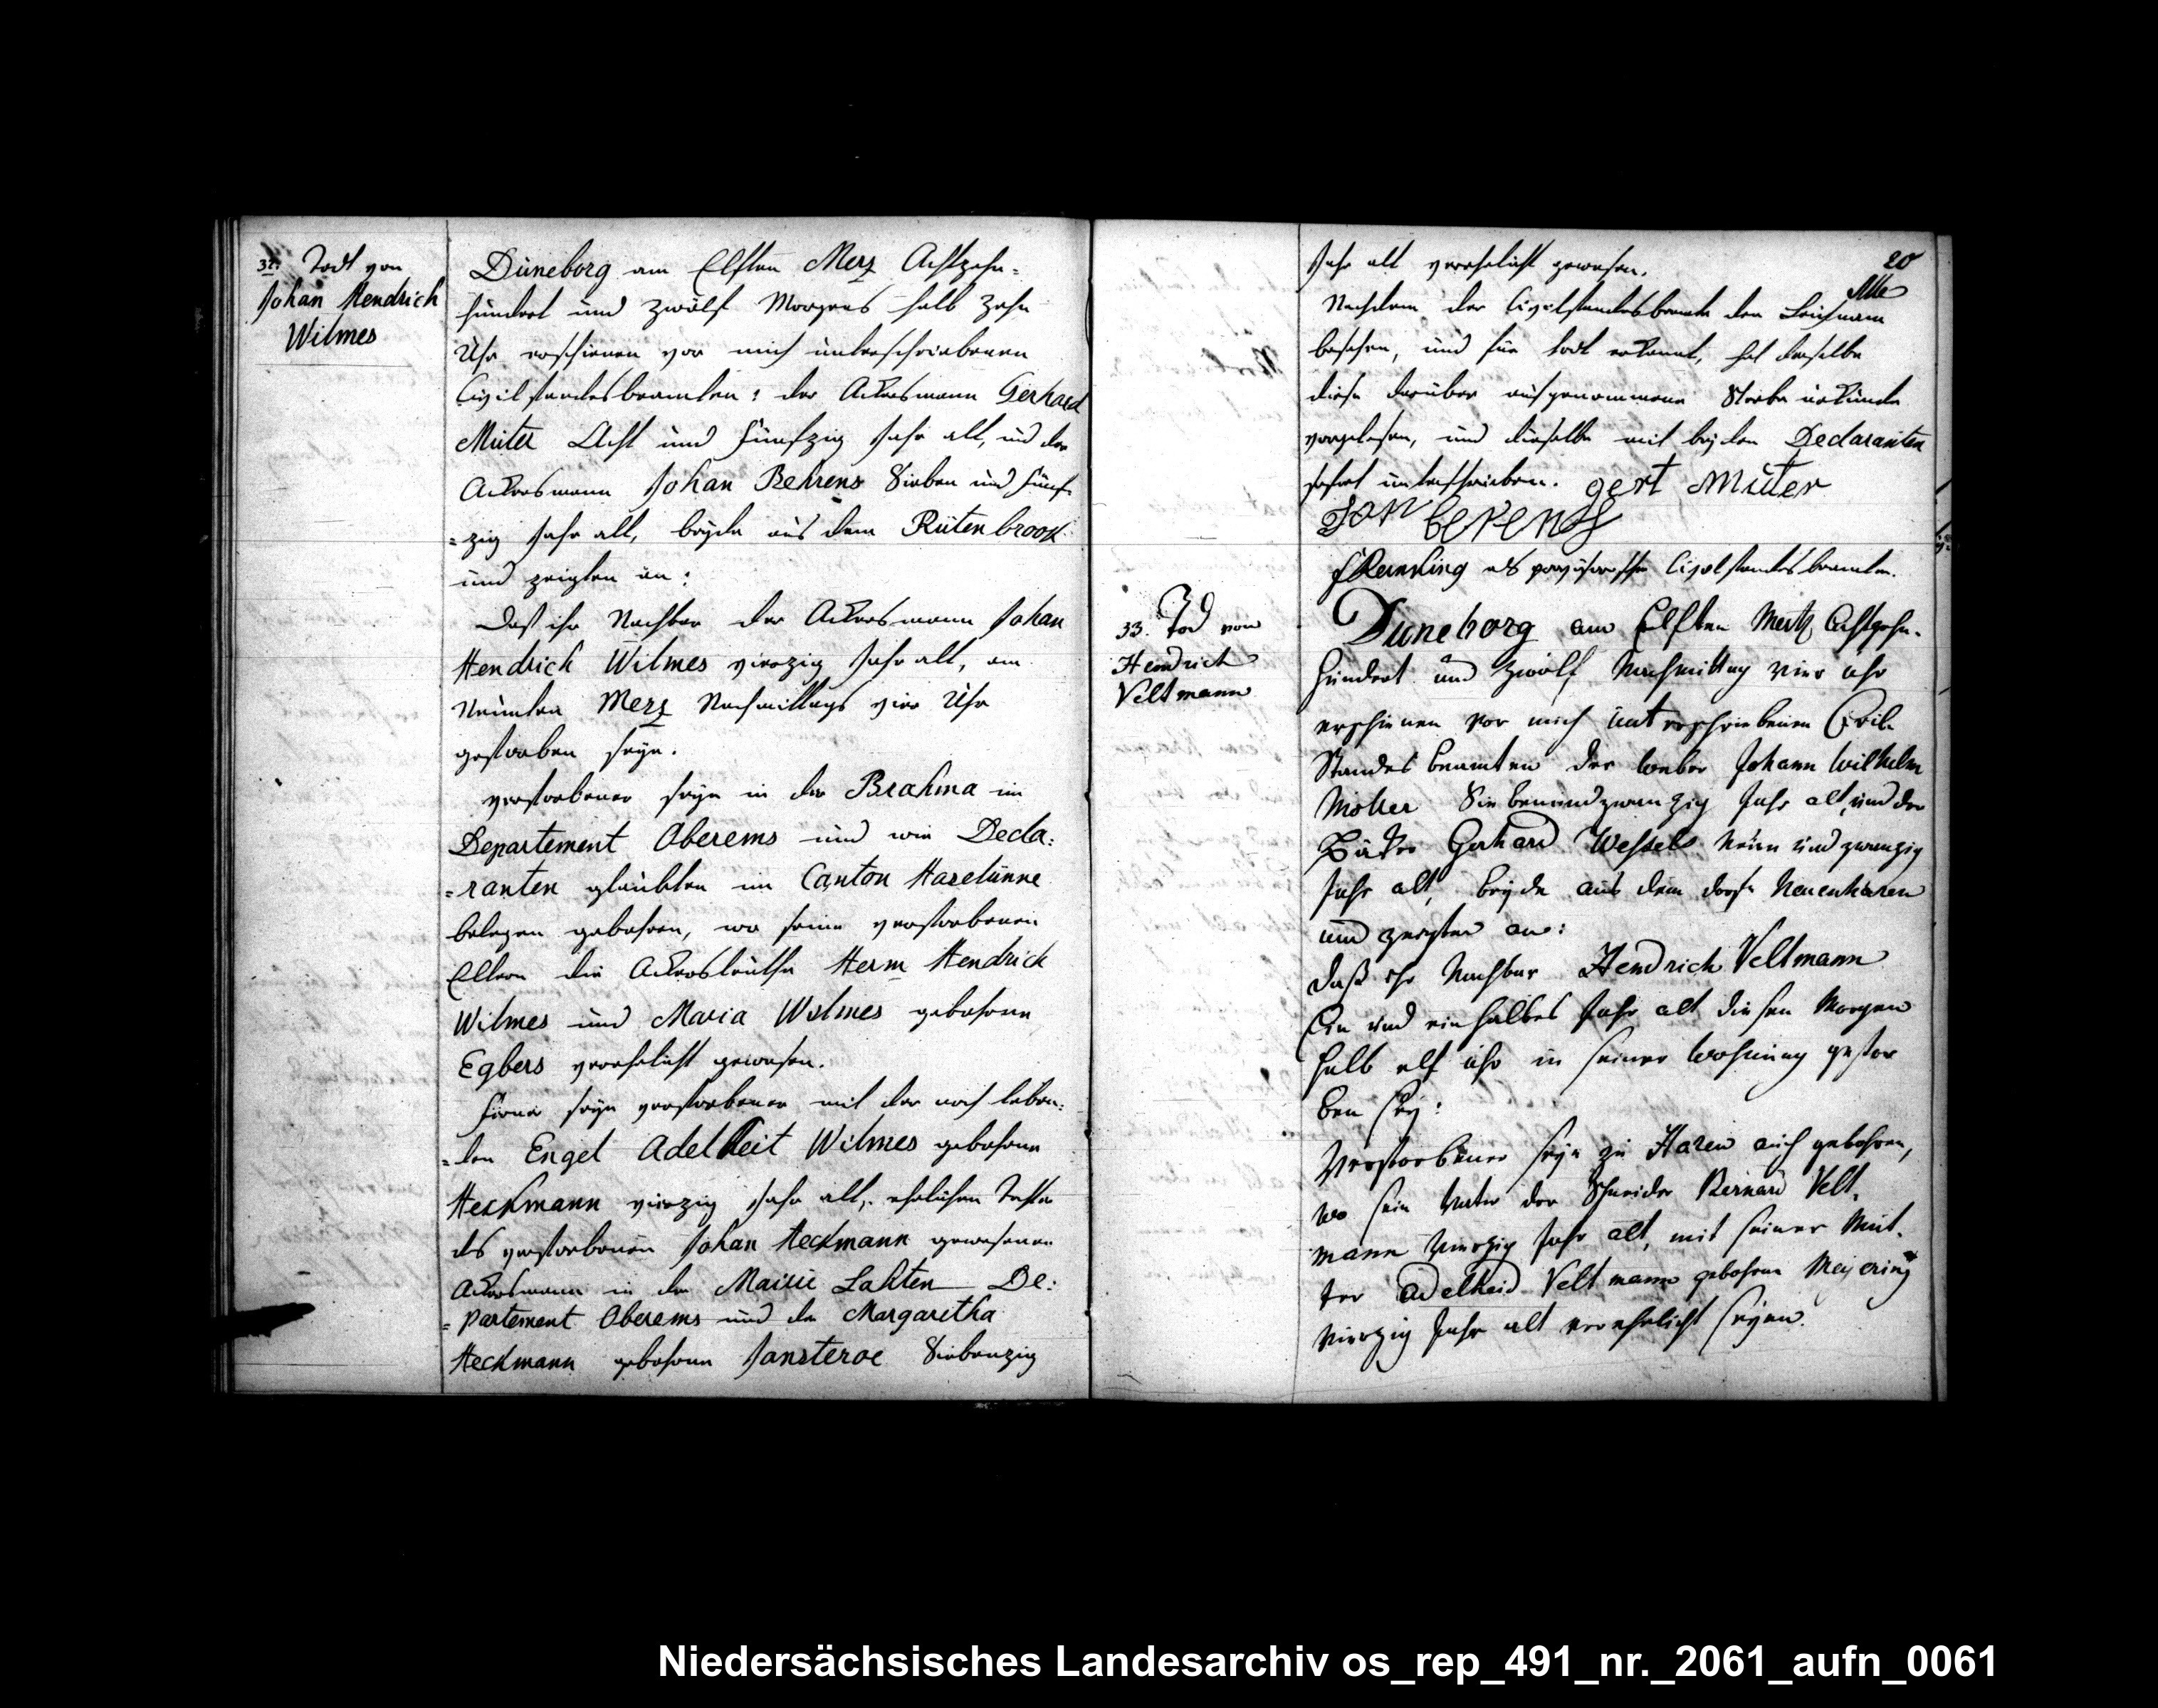 32. Todt von
Johan Hendrich
Wilmes
Düneborg am Elften Merz Achtzehn-
hundert und zwölf Morgens halb zehn
Uhr erschienen vor mich unterschriebenen
Civilstandesbeamten: der Ackersmann Gerhard
Müter Acht und fünfzig Jahr alt, und der
Ackersmann Johan Behrens Sieben und fünf-
=zig Jahr alt, beyde aus dem Rütenbrook
und zeigten an:
Daß ihr Nachbar der Ackersmann Johan
Hendrich Wilmes vierzig Jahr alt, am
Neunten Merz Nachmittags vier Uhr
gestorben seye.
verstorbener seye in der Brahma im
Departement Oberems und wie Decla:
=ranten glaubten im Canton Haselünne
belegen gebohren, wo seine verstorbenen
Eltern die Ackersleuthe Herm Hendrick
Wilmes und Maria Wilmes gebohrne
Egbers verehelicht gewesen.
Ferner seye verstorbener mit der noch leben:
=den Engel Adelheit Wilmes gebohrne
Heckmann vierzig Jahr alt, ehelichen Tochter
des verstorbenen Johan Heckmann gewesenen
Ackersmann in der Mairie Lahten De:
=partement Oberems und der Margaretha
Heckmann gebohrne Jansteroe Siebenzig
20
Jahr alt verehelicht gewesen.
Nachdem der Civilstandesbeamte den Leichnam
besehen, und für todt erkannt, hat derselbe
diese darüber aufgenommene Sterbe urkunde
vorgelesen, und dieselbe mit beyden Declaranten
sofort unterschrieben. gert Müter
Jan berens
als provisorischer Civilstandesbeamter.
33. Tod von
Hendrich
Veltmann
Düneborg am Elften Mertz Achtzehn-
hundert und zwölf Nachmittag vier uhr
erschienen vor mich unterschriebenen Civil-
Standes beamten der weber Johann Wilhelm
Möller Siebenundzwanzig Jahr alt, und der
Bäker Gerhard Wessels Neun und zwanzig
Jahr alt, beyde aus dem dorfe Neuenharen
und zeigten an:
daß ihr Nachbar Hendrich Veltmann
Ein und ein halbes Jahr alt diesen Morgen
halb elf uhr in seiner Wohnung gestor
ben sey:
Verstorbener seye zu Haren auch gebohren,
wo sein Vater der Schneider Bernard Velt-
mann Vierzig Jahr alt, mit seiner Mut-
ter Adelheid Veltmann gebohrne Meyering
Vierzig Jahr alt verehelicht seyen.
Niedersächsisches Landesarchiv os_rep_491_nr._2061_aufn_0061